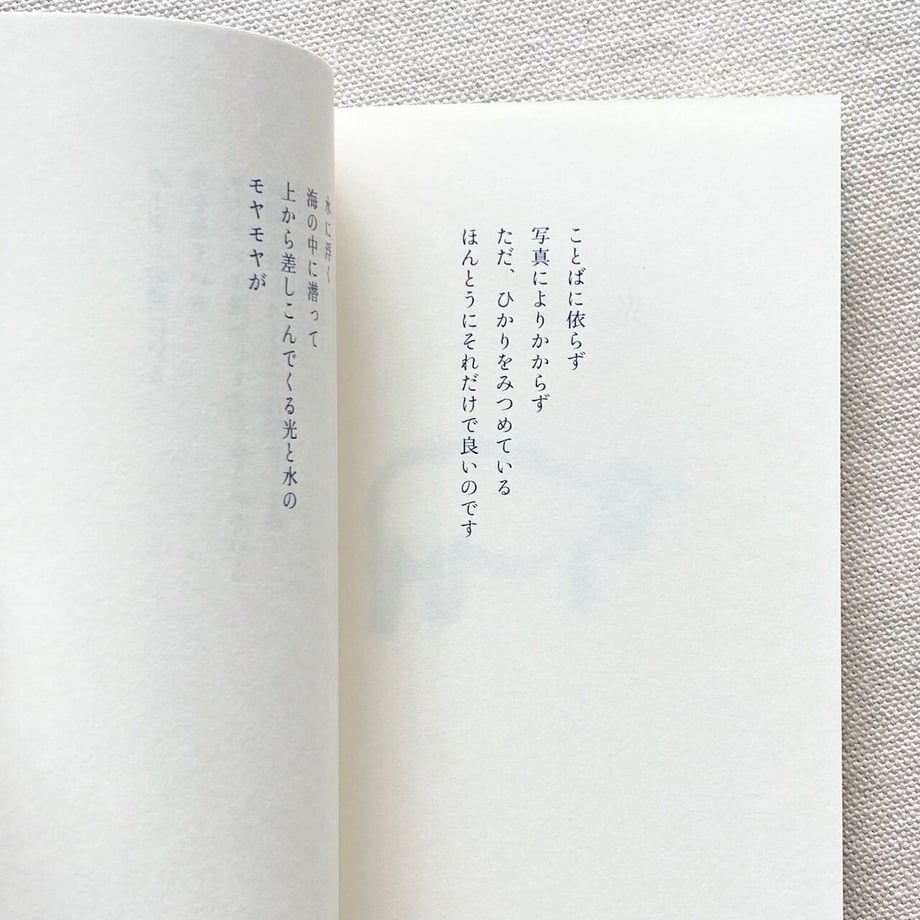 ことばに依らず
写真によりかからず
ただ、ひかりをみつめている
ほんとうにそれだけで良いのです
水に浮く
海の中に潜って
上から差しこんでくる光と水の
モヤモヤが